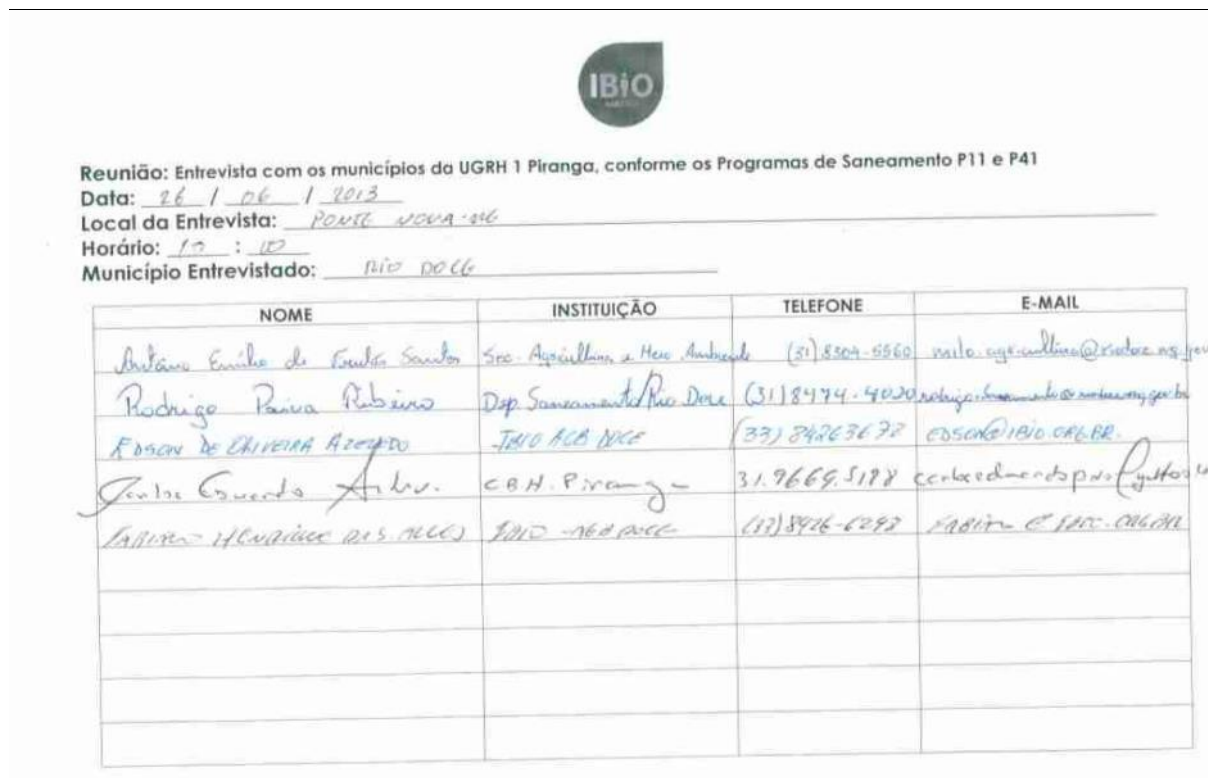 IBiO
Reunião: Entrevista com os municípios da UGRH 1 Piranga, conforme os Programas de Saneamento P11 e P41
Data: 26 / 06 / 2013
Local da Entrevista: PONTE NOVA-MG
Horário: : 00
Município Entrevistado: RIO DOCE
NOME INSTITUIÇÃO TELEFONE E-MAIL
Antônio Emílio de Santos Sec. Agricultura e Meio Ambiente (31) 8304-5560
Rodrigo Paiva Ribeiro Dep. Saneamento/Rio Doce (31) 8474-4020
EDSON DE OLIVEIRA AZEVEDO IBIO AGB DOCE (33) 84263678 EDSON@IBIO.ORG.BR.
Carlos Eduardo CBH. Piranga 31.9669.5188
HENRIQUE ALVES IBIO - AGB DOCE (33) 8426-6298